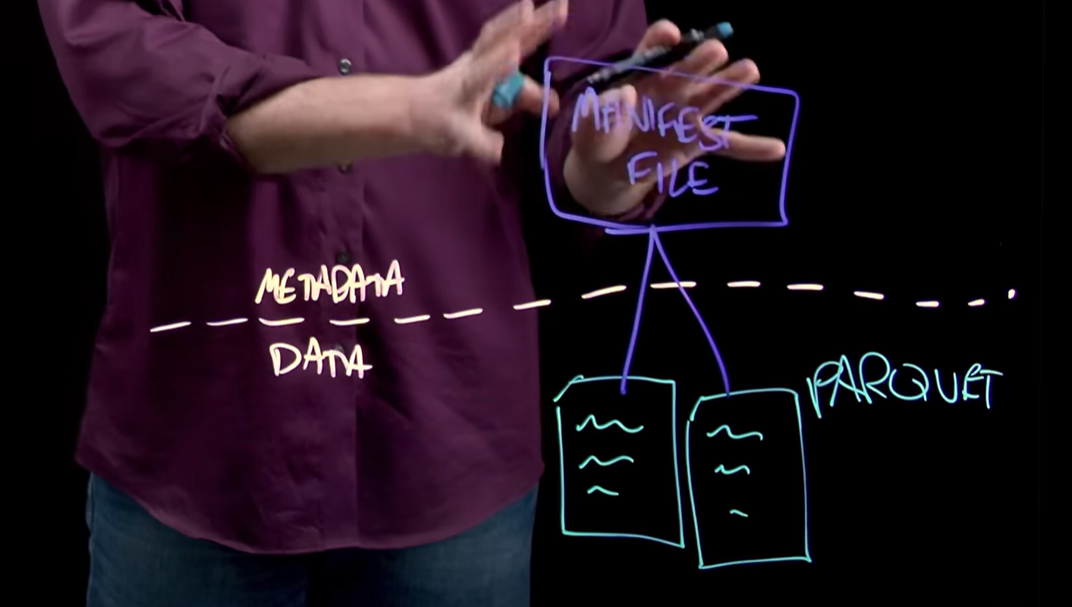 MANIFEST
FILE
METADATA
DATA
PARQUET